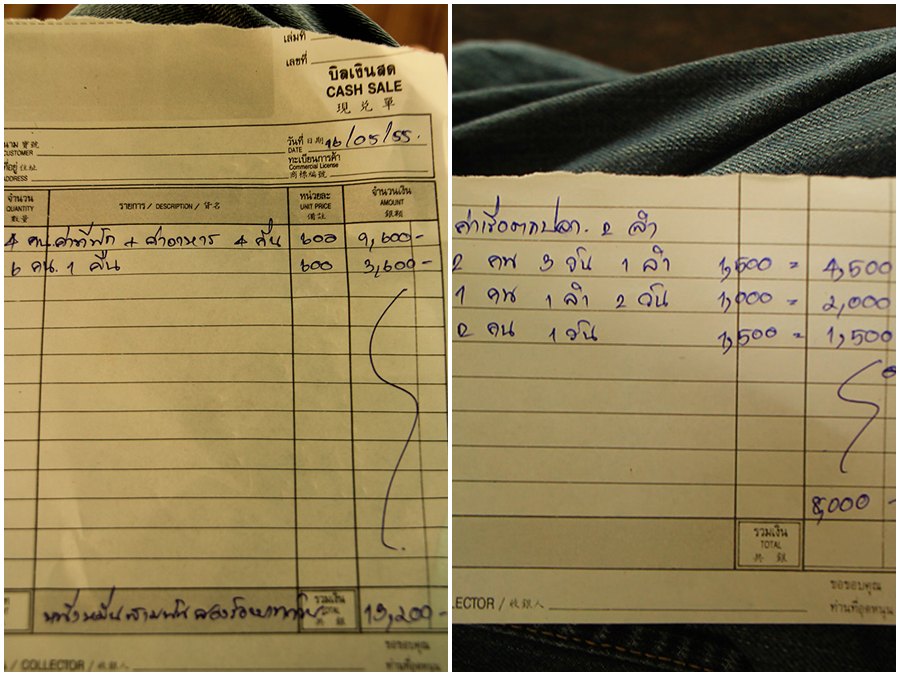 เล่มที่
เลขที่
บิลเงินสด
CASH SALE
現兌單
นาม 寶號
CUSTOMER
วันที่ 日期 16/05/55.
DATE
ที่อยู่ 住址
ADDRESS
ทะเบียนการค้า
Commercial License
商標編號
จำนวน
QUANTITY
數量
รายการ / DESCRIPTION / 貨名
หน่วยละ
UNIT PRICE
備註
จำนวนเงิน
AMOUNT
銀額
4 คน ค่าที่พัก + ค่าอาหาร 4 คืน 600 9,600-
6 คน 1 คืน 600 3,600-
หนึ่งหมื่นสามพันสองร้อยบาทถ้วน
รวมเงิน
TOTAL
共銀
13,200-
ขอขอบคุณ
/ COLLECTOR / 收銀人
ท่านที่อุดหนุน
ค่าเรือตกปลา. 2 ลำ
2 คน 3 วัน 1 ลำ 1,500 = 4,500
1 คน 1 ลำ 2 วัน 1,000 = 2,000
2 คน 1 วัน 1,500 = 1,500
8,000 -
รวมเงิน
TOTAL
共銀
ขอขอบคุณ
LECTOR / 收銀人
ท่านที่อุดหนุน